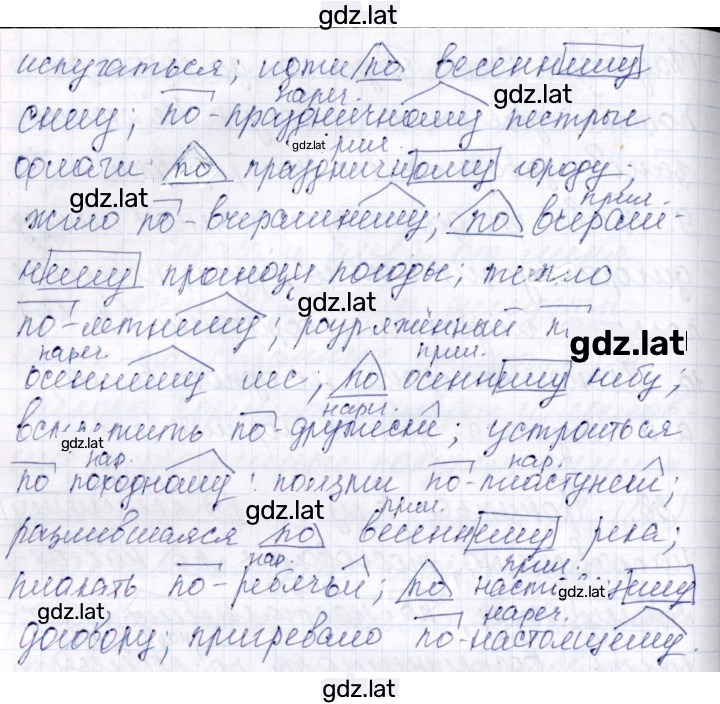 gdz.lat
испугаться; идти по весеннему
нареч. gdz.lat
снегу; по-праздничному пестрые
gdz.lat прил.
флаги по праздничному городу;
gdz.lat прил.
жило по-вчерашнему; по вчераш-
нему прогнозу погоды; тепло
gdz.lat
по-летнему; разряжённый
gdz.lat
нареч. прил.
осеннему лес; по осеннему небу;
нареч.
gdz.lat по-дружески; устроиться
нар. нар.
по походному ползти по-пластунски;
gdz.lat прил.
разлившаяся по весеннему река;
нар. прил.
плакать по-ребячьи; по
gdz.lat gdz.lat нареч.
договору; пригревало по-настоящему.
gdz.lat